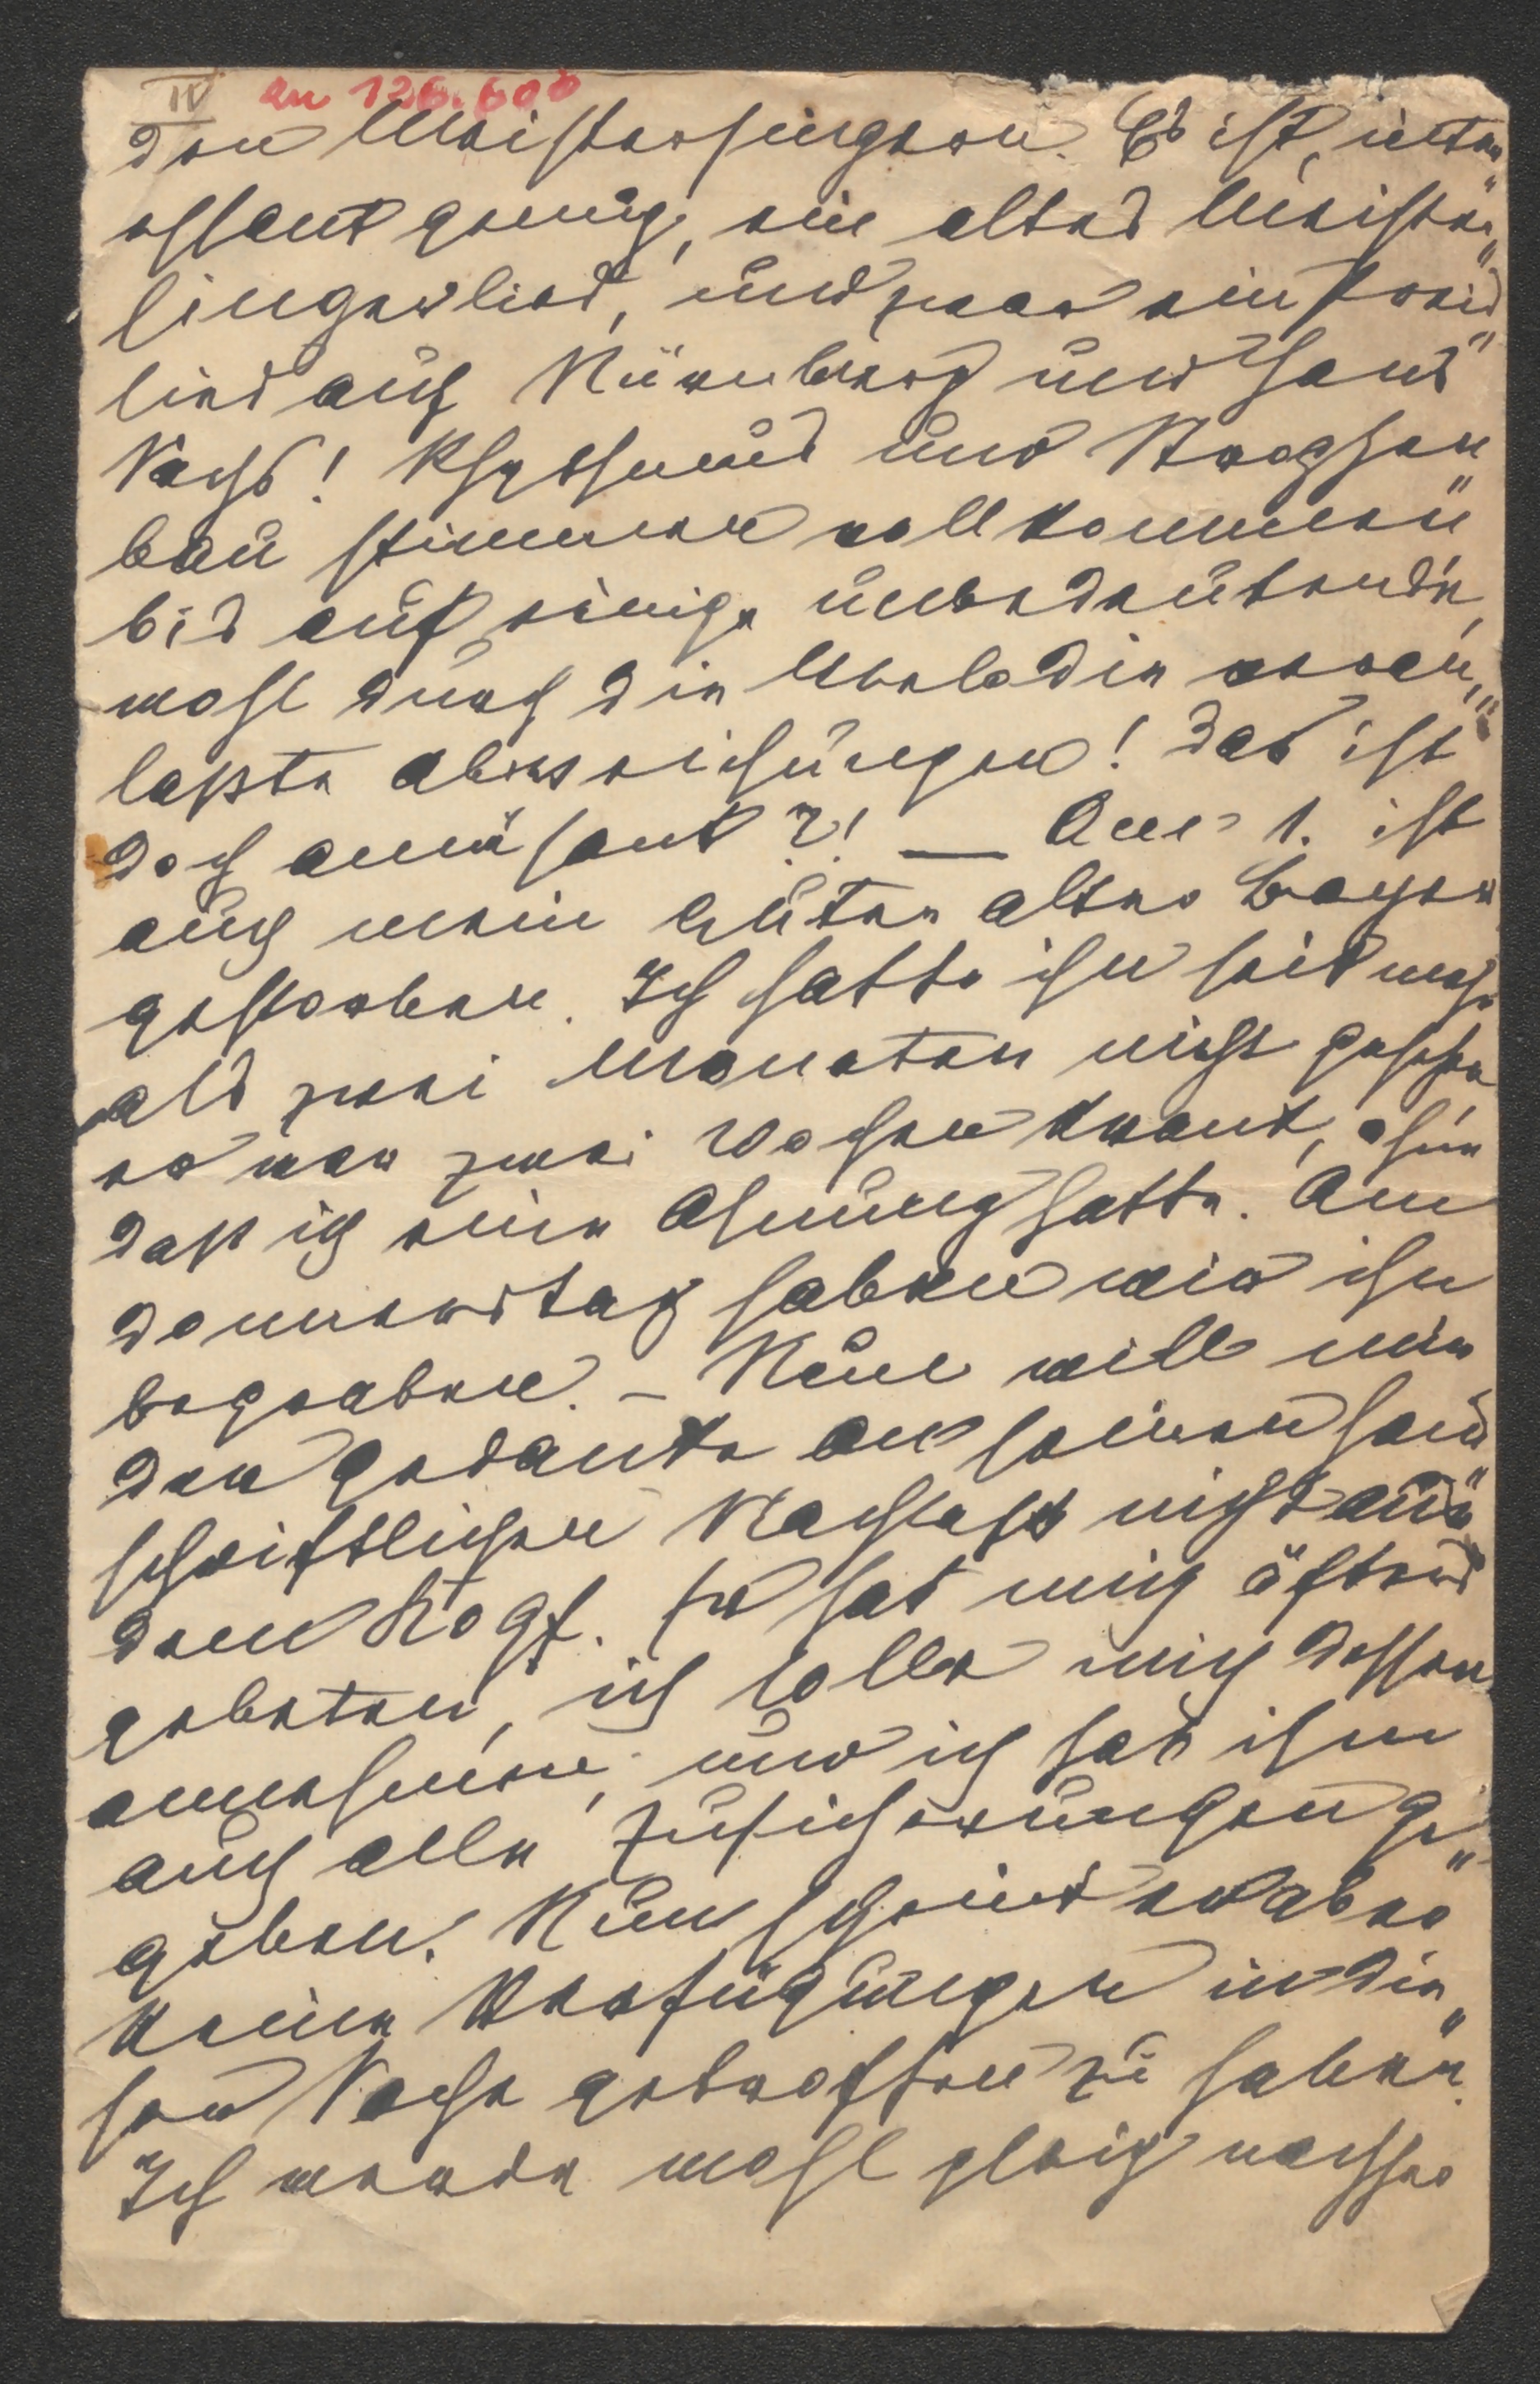 IV an 126.608
den Meistersingern. Es ist, inter„
essant genug, ein altes Meister„
singerlied, und zwar ein Preis„
lied auf Nürnberg und Hans
Sachs! Rhythmus und Strophen„
bau stimmen vollkommen
bis auf einige unbedeutende,
wohl durch die Melodie veran„
laßte Abweichungen! Das ist
doch amüsant?! — Am 1. ist
auch mein guter alter Bayer
gestorben. Ich hatte ihn seit mehr
als zwei Monaten nicht gesehen
er war zwei Wochen krank, ohne
daß ich eine Ahnung hatte. Am
Donnerstag haben wir ihn
begraben. – Nun will mir
der Gedanke an seinen hand„
schriftlichen Nachlaß nicht aus
dem Kopf. Er hat mich öfters
gebeten, ich solle mich dessen
annehmen, und ich hab ihm
auch alle Zusicherungen ge„
geben. Nun scheint er aber
keine Verfügungen in die„
ser Sache getroffen zu haben.
Ich werde wohl gleich nachher